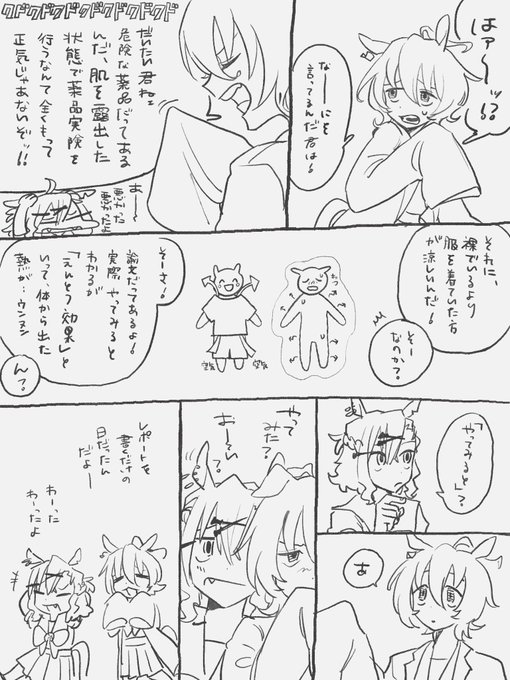 はァ〜ッ!?
なーにを
言ってるんだ君は!
クドクドクドクドクドクドクド
だいたい君ねェ
危険な薬品だってある
んだ、肌を露出した
状態で薬品実験を
行うなんて全くもって
正気じゃあないぞッ!!
あー
悪かった
悪かったよ
それに、
裸でいるより
服を着ていた方
が涼しいんだ!
そー
なのか?
そーさ!
論文だってあるよ!
実際やってみると
わかるが
「えんとつ効果」と
いって、体から出た
熱が…ウンヌン
ん?
「やってみると」?
あ
やって
みた?
おーい?
レポートを
書くだけの
日だったん
だよー
わーった
わーったよ